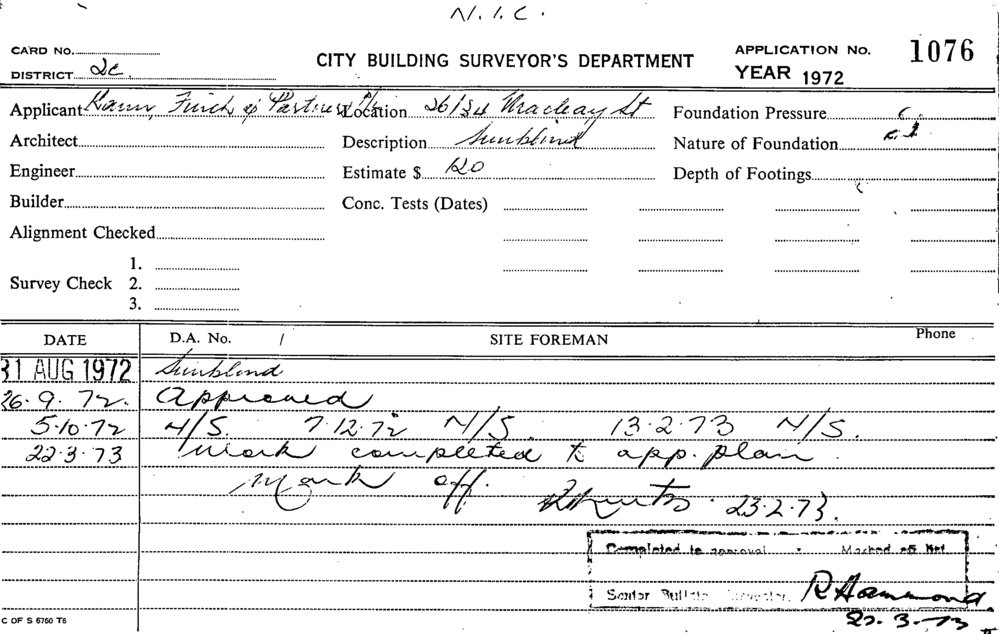 N.I.C.
CARD No.
CITY BUILDING SURVEYOR'S DEPARTMENT
APPLICATION No. 1076
DISTRICT 2c
YEAR 1972
Applicant Finch & Partners P/L
Location 26/34 Macleay St
Foundation Pressure
Architect
Description Sunblind
Nature of Foundation
Engineer
Estimate $ 120
Depth of Footings
Builder
Conc. Tests (Dates)
Alignment Checked
Survey Check 1.
2.
3.
DATE D.A. No. / SITE FOREMAN Phone
31 AUG 1972 Sunblind
26.9.72. Approved
5.10.72 N/S. 7.12.72 N/S. 13.2.73 N/S.
22.3.73 Work completed to app. plan.
Mark off. 23.2.73.
Completed to approval . Marked off
Senior Surveyor. R Hammond
22.3.73
C OF S 6750 T6